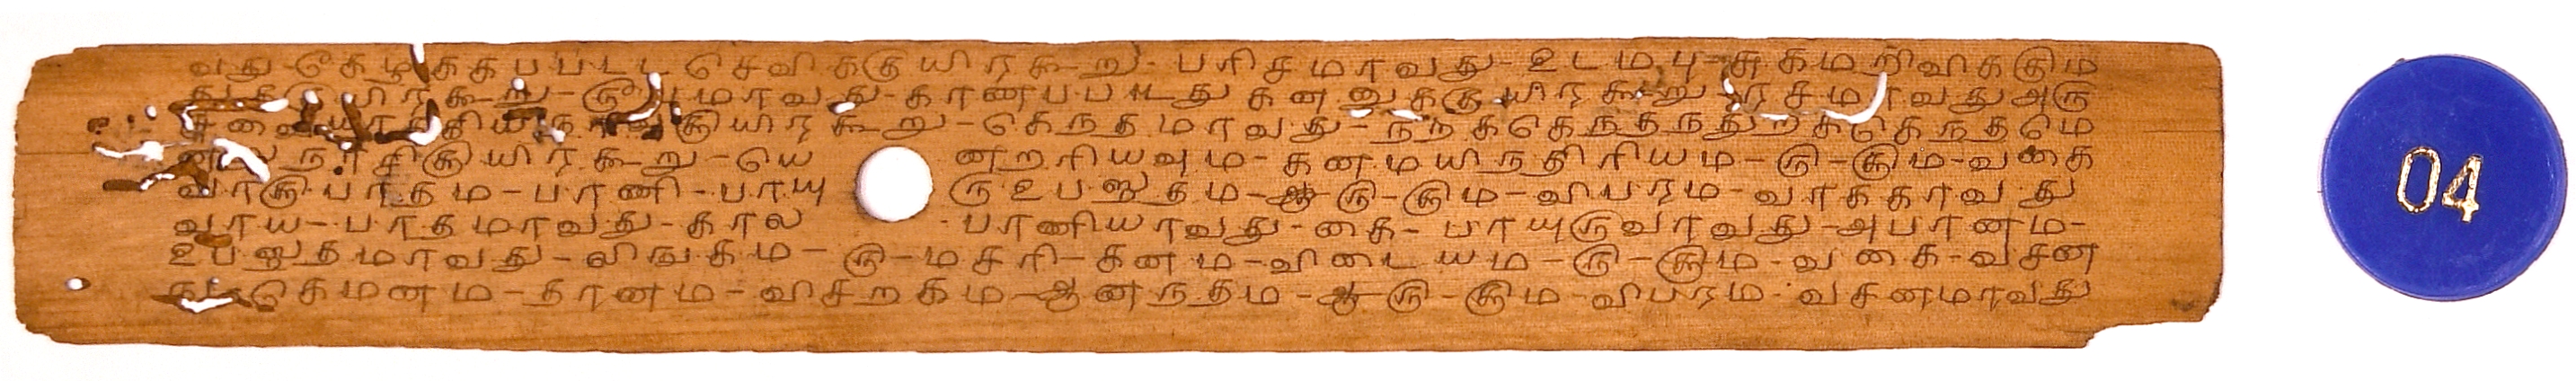 வது-கேழககபபடட செவிககுயிரகூறு-பரிசமாவது-உடமபு-சுகமறிவிககும
யிரகூறு-ரூபமாவது-காணபபடடது கனனுககுயிரகூறு-ரசமாவது அரு
யிரகூறு-கெநதமாவது-நறகெநதநதுறகெநதமெ
நாசிகுயிரகூறு-யெ னறறியவும-கனமயிநதிரியம-௫-கும-வகை
வாகு-பாதம-பாணி-பாயுரு உபஸதம-ஆ-௫-கும-விபரம-வாககாவது
வாய-பாதமாவது-கால பாணியாவது-கை-பாயுருவாவது-அபானம-
உபஸதமாவது-லிஙகம-௫-மசரி-கனம-விடையம-௫-கும-வகை-வசன
கெமனம-தானம-விசறகம-ஆனநதம-ஆ-௫-கும-விபரம-வசனமாவது
04